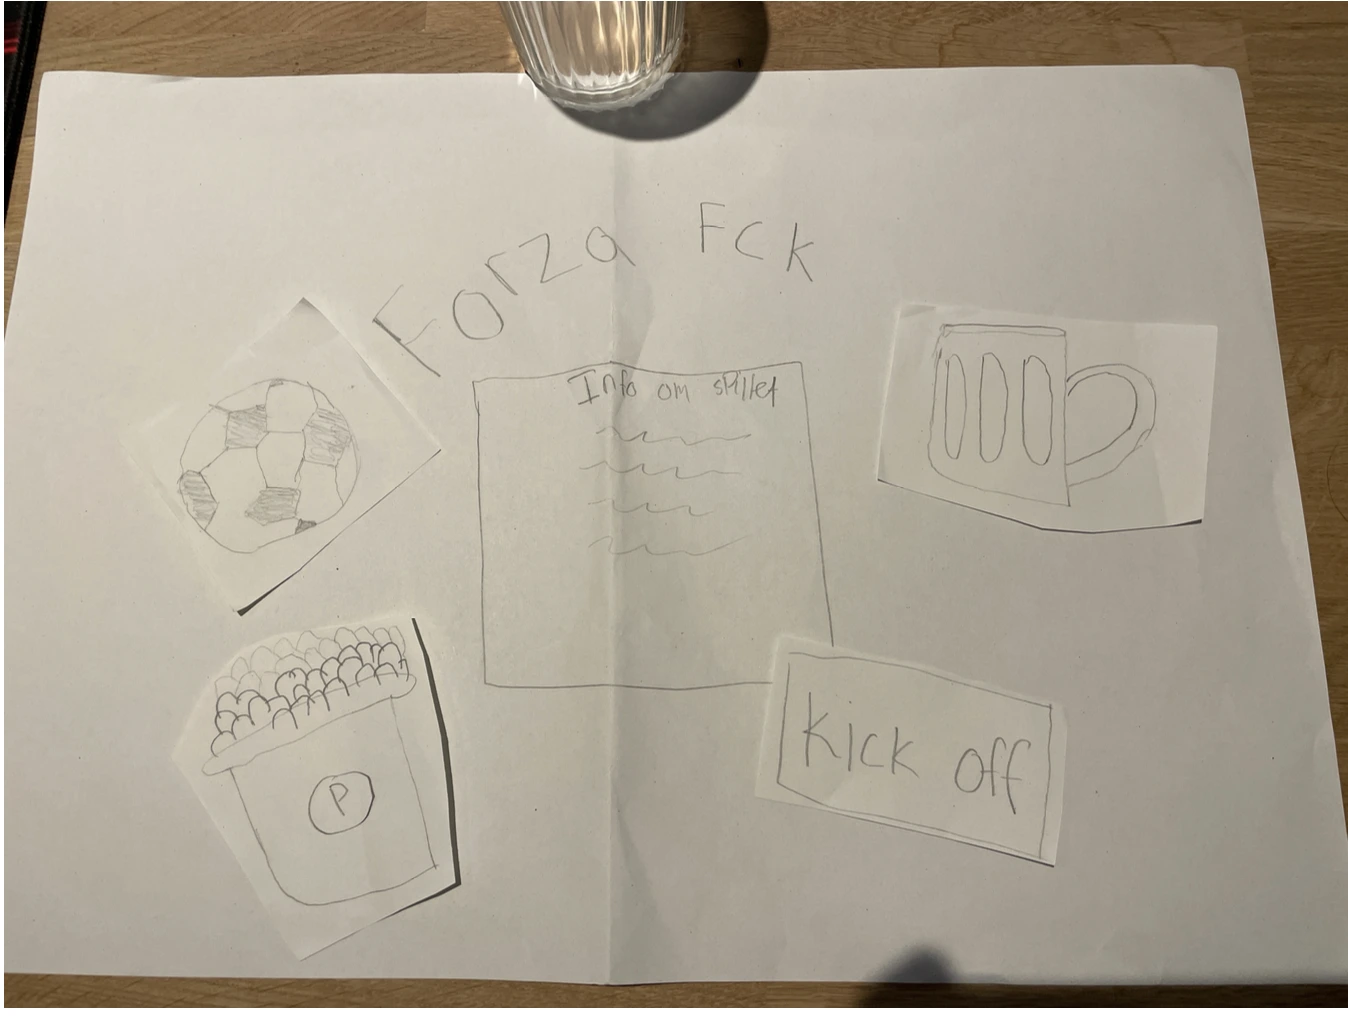 Forza FCK
Info om spillet
P
Kick off